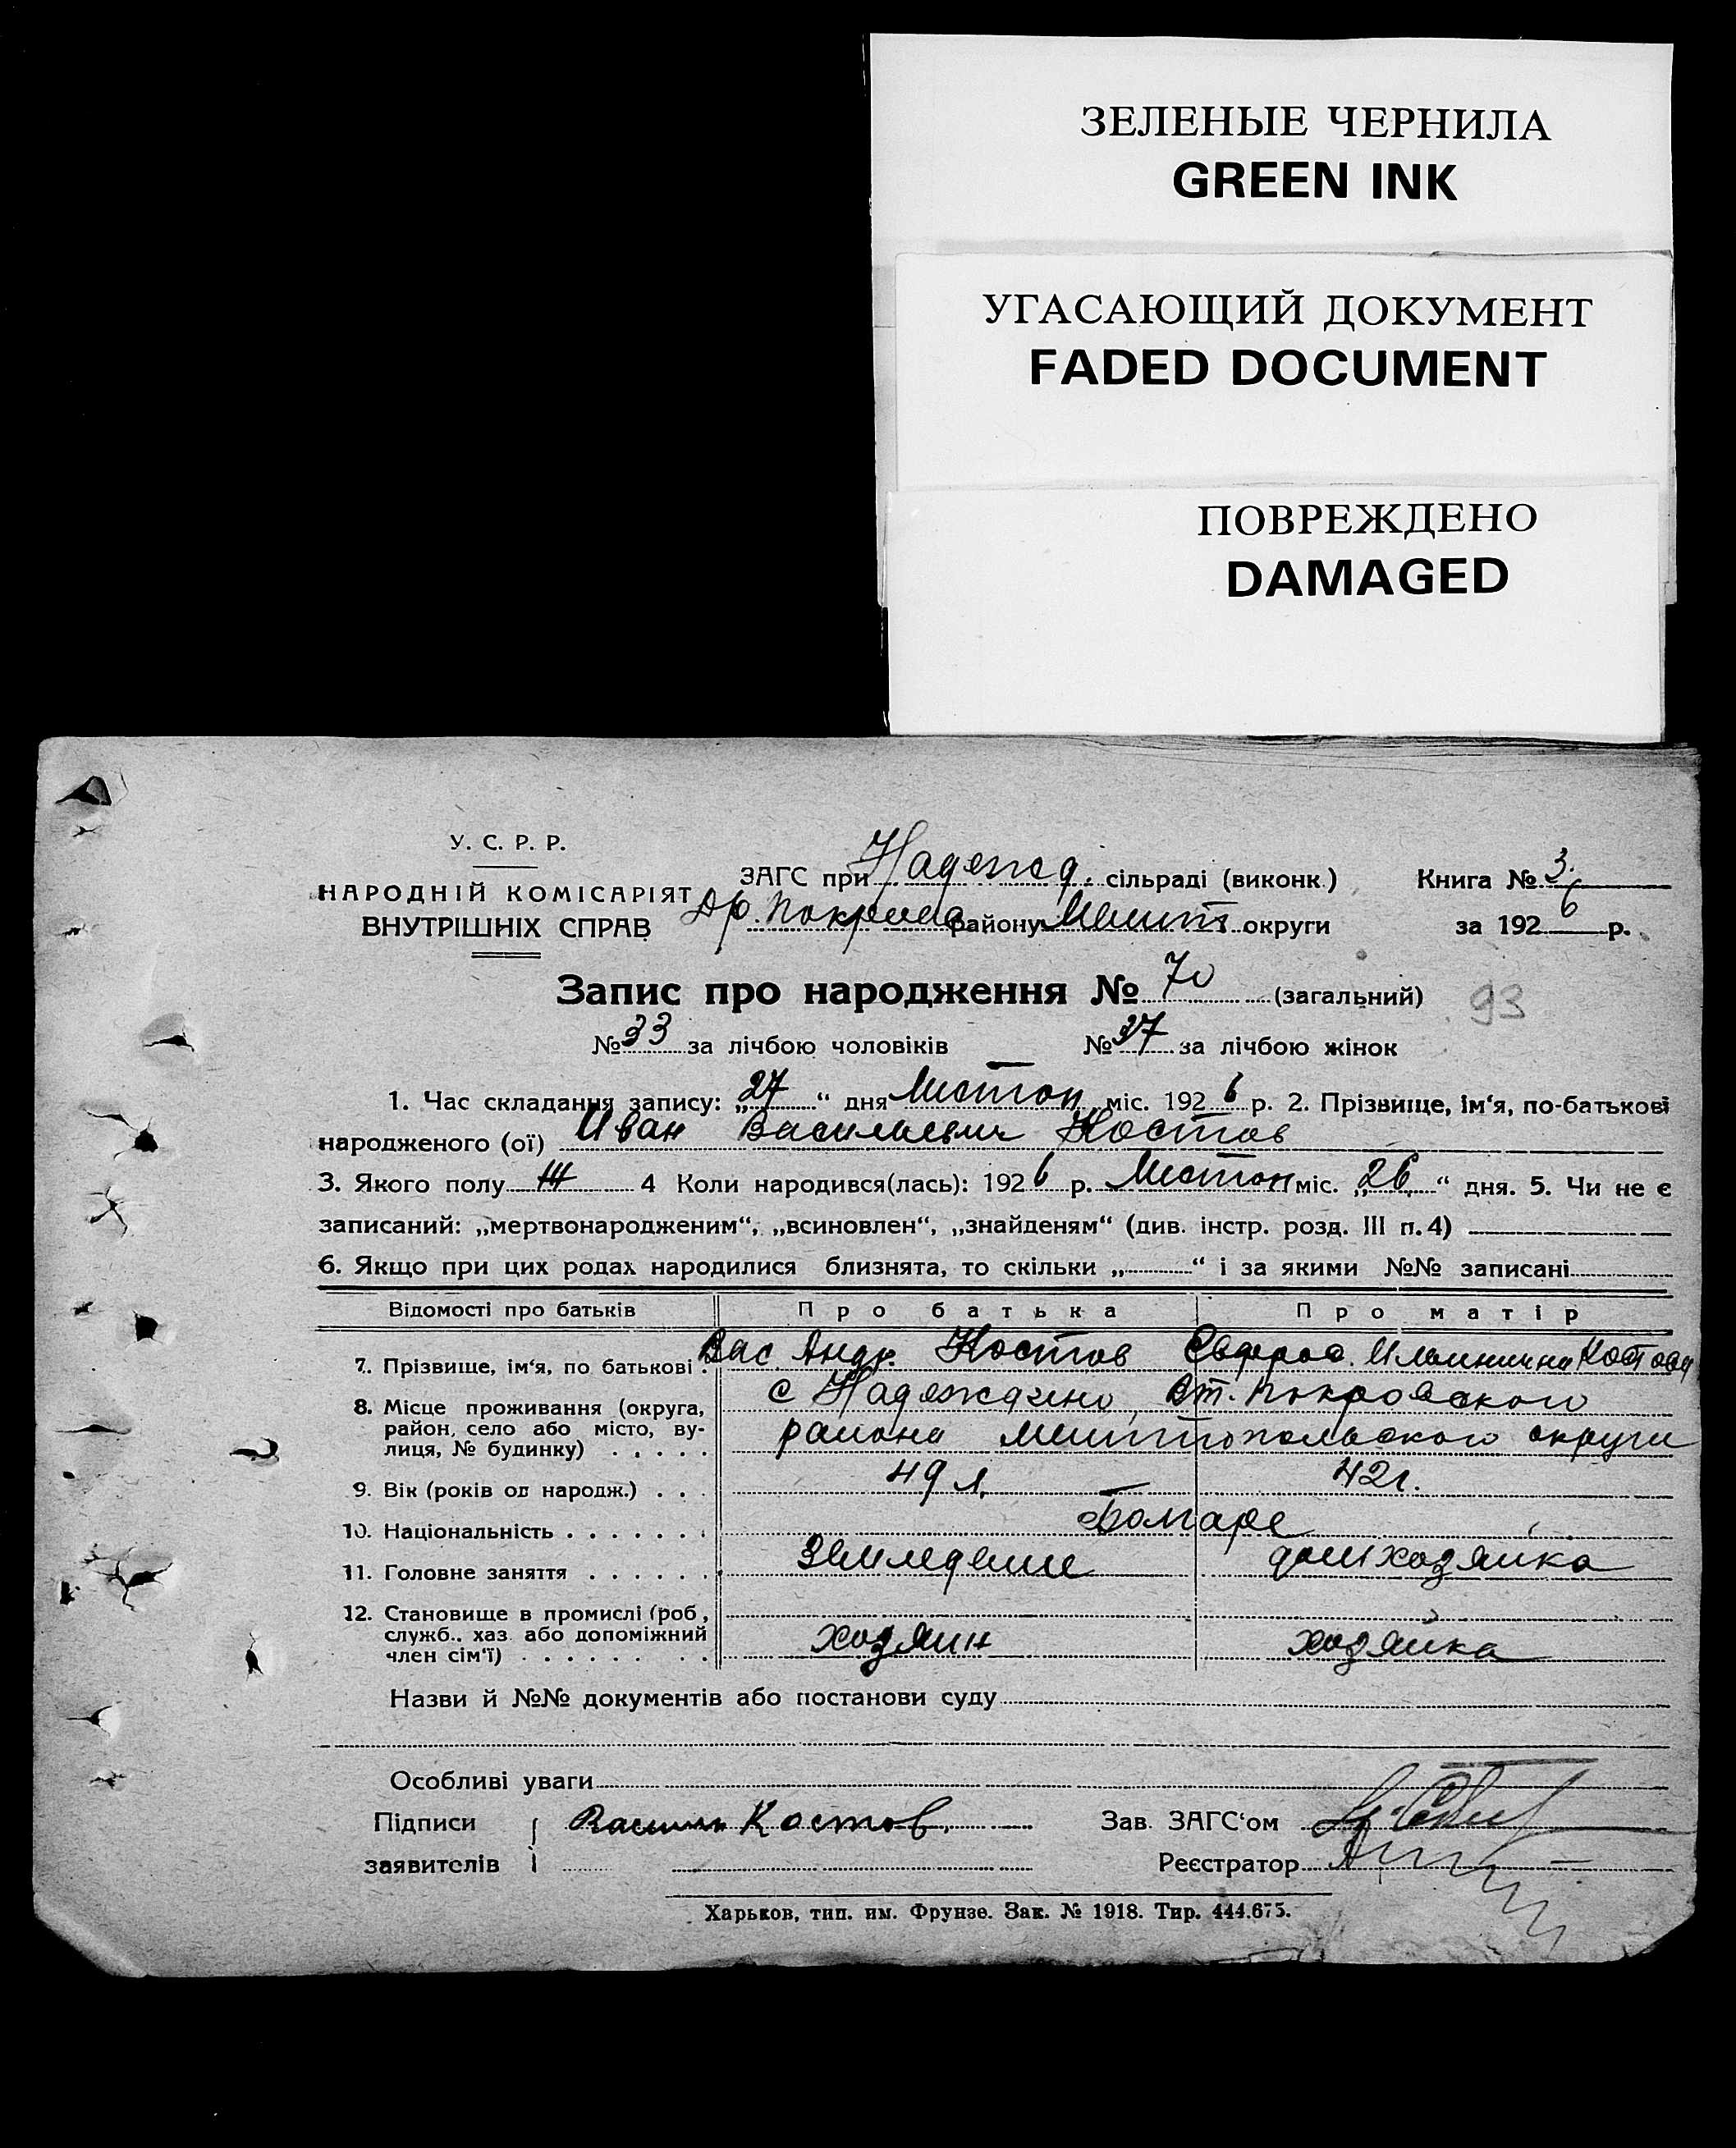 ЗЕЛЕНЫЕ ЧЕРНИЛА
GREEN INK
УГАСАЮЩИЙ ДОКУМЕНТ
FADED DOCUMENT
ПОВРЕЖДЕНО
DAMAGED
У. С. Р. Р.
НАРОДНІЙ КОМІСАРІЯТ
ВНУТРІШНІХ СПРАВ
ЗАГС при Надежд. сільраді (виконк.)
району Мелит округи
Книга № 3.
за 1926 р.
Запис про народження № 70 (загальний) 93
№ 33 за лічбою чоловіків № 37 за лічбою жінок
1. Час складання запису: „27“ дня Листоп міс. 1926 р. 2. Прізвище, ім'я, по-батькові
народженого (ої) Иван Васильевич Костов
3. Якого полу Ч 4 Коли народився(лась): 1926 р. Листоп міс. „26“ дня. 5. Чи не є
записаний: „мертвонародженим“, „всиновлен“, „знайденям“ (див. інстр. розд. III п. 4)
6. Якщо при цих родах народилися близнята, то скільки „ “ і за якими №№ записані
Відомості про батьків Про батька Про матір
7. Прізвище, ім'я, по батькові . Вас. Андр. Костов Евфрос. Ильинична Костова
8. Місце проживання (округа, район, село або місто, вулиця, № будинку) . . . . . с Надеждино, Покровского
района Мелитопольского округи
9. Вік (років од народж.) . . . 49 л. 42 г.
10. Національність . . . . . . . Болгаре
11. Головне заняття . . . . . . Земледелие домхозяйка
12. Становище в промислі (роб., служб., хаз. або допоміжний член сім'ї) . . . . . . . . хозяин хозяйка
Назви й №№ документів або постанови суду
Особливі уваги
Підписи заявителів Василь Костов.
Зав. ЗАГС'ом
Реєстратор
Харьков, тип. им. Фрунзе. Зак. № 1918. Тир. 444.675.